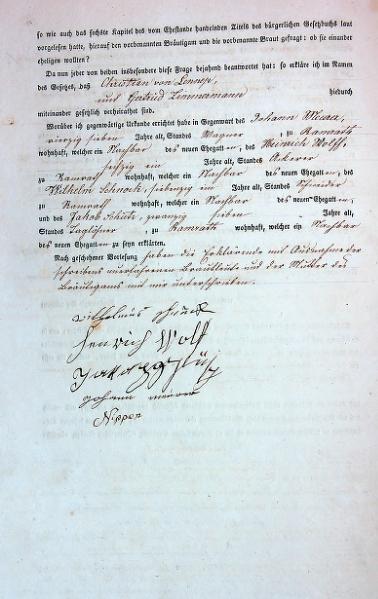 so wie auch das sechste Kapitel des vom Ehestande handelnden Titels des bürgerlichen Gesetzbuchs laut
vorgelesen hatte, hierauf den vorbenannten Bräutigam und die vorbenannte Braut gefragt: ob sie einander
ehelichen wollten?
Da nun jeder von beiden insbesondere diese Frage bejahend beantwortet hat: so erkläre ich im Namen
des Gesetzes, daß Christian von Lennep,
und Gertrud Zimmermann hiedurch
miteinander gesetzlich verheirathet sind.
Worüber ich gegenwärtige Urkunde errichtet habe in Gegenwart des Johann
vierzig sieben Jahre alt, Standes Wagner, zu Ramrath
wohnhaft, welcher ein Nachbar des neuen Ehegatten, des Heinrich Wolff,
sechzig ein Jahre alt, Standes Ackerer
zu Ramrath wohnhaft, welcher ein Nachbar des neuen Ehegatten, des
Wilhelm Schnock, siebenzig ein Jahre alt, Standes Schneider
zu Ramrath wohnhaft, welcher ein Nachbar des neuen Ehegatten,
und des Jakob Schütz, zwanzig sieben Jahre alt,
Standes Taglöhner, zu Ramrath wohnhaft, welcher ein Nachbar
des neuen Ehegatten zu seyn erklärten.
Nach geschehener Vorlesung haben die Erklärende mit Ausnahme der
schreibens unerfahrenen Brautleute und der Mutter des
Bräutigams mit mir unterschrieben.
wilhelmus
henrich Wolf
johann
Nipper